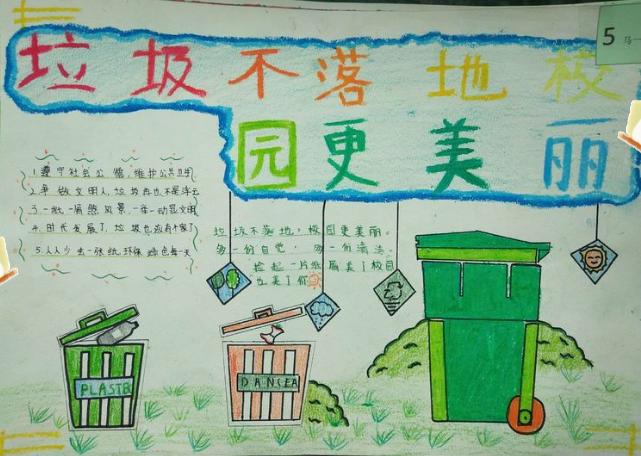 垃圾不落地校
园更美丽
5
1.遵守社会公德,维护公共卫生
2.争做文明人,垃圾再也不是浮云
3.一纸一屑煞风景,一举一动显文明
4.时代发展了,垃圾也应有个家了
5.人人少丢一张纸,环保绿色每一天
垃圾不落地,校园更美丽。
多一份自觉,多一份清洁。
捡起一片纸屑美了校园
也美了你
PLASTB
DANCEA